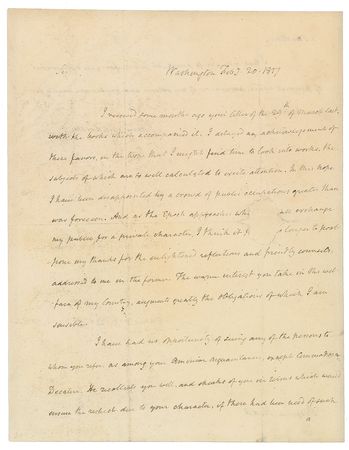 Sir, Washington Feby 20. 1817
I received some months ago your letter of the 29th of March last,
with the books which accompanied it. I delayed an acknowledgement of
these favors, in the hope that I might find time to look into works, the
subjects of which are so well calculated to excite attention. In this hope
I have been disappointed by a crowd of public occupations greater than
was foreseen. And as the Epoch approaches exchange
my public for a private character, I think it longer to post
pone my thanks for the enlightened reflections and friendly
addressed to me in the former. The warm interest you take in the wel
fare of my Country, augments greatly the obligations of which I am
sensible.
I have had no opportunity of seeing any of the persons to
whom you refer, as among your American acquaintance, except Commodore
Decatur. He recollects you well, and speaks of you in terms which would
ensure the respect due to your character, if there had been need of such
a